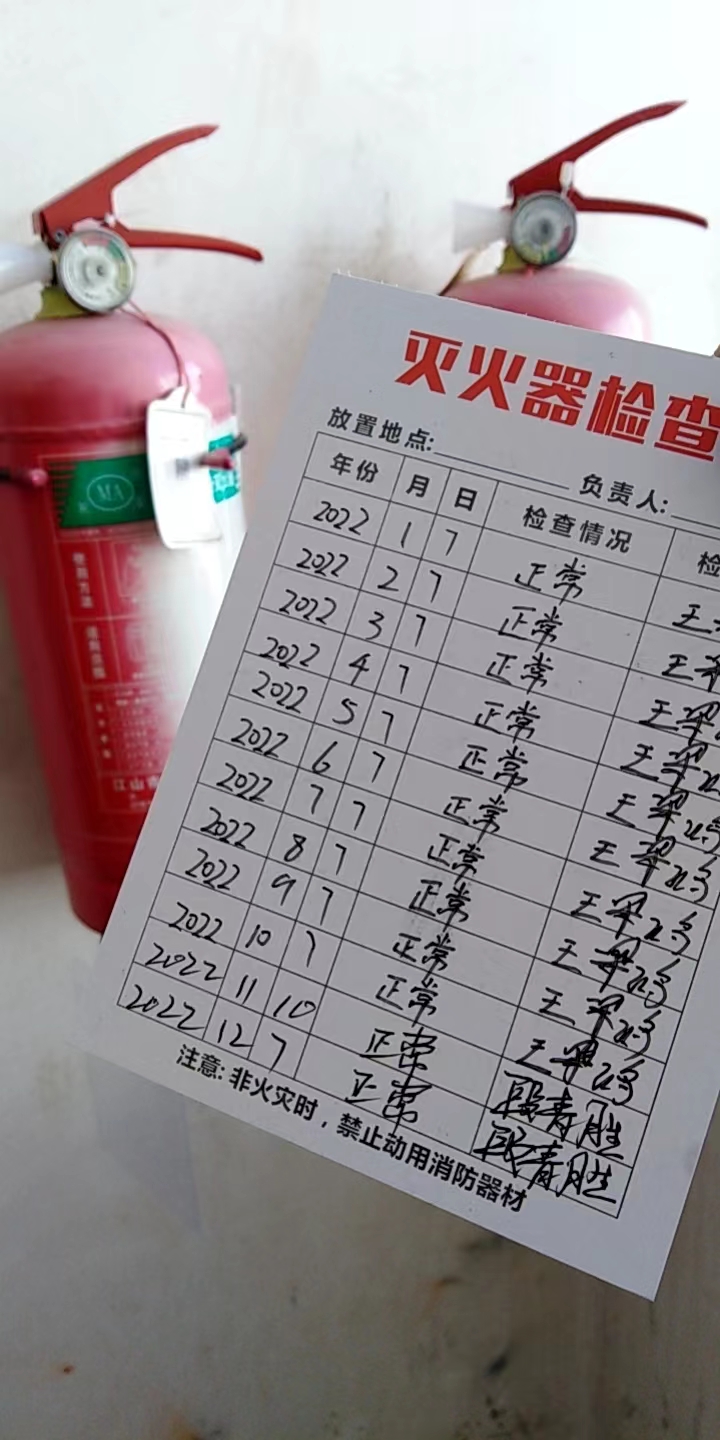 灭火器检查
放置地点: 负责人:
年份 月 日 检查情况 检
2022 1 7 正常 王
2022 2 7 正常 王
2022 3 7 正常 王
2022 4 7 正常 王
2022 5 7 正常 王
2022 6 7 正常 王
2022 7 7 正常 王
2022 8 7 正常 王
2022 9 7 正常 王
2022 10 7 正常 王
2022 11 10 正常 段青胜
2022 12 7 正常 段青胜
注意: 非火灾时，禁止动用消防器材
MA
江山市